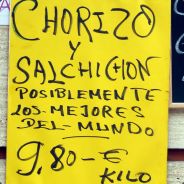 CHORIZO
Y
SALCHICHON
POSIBLEMENTE
LOS-MEJORES
DEL-MUNDO
9,80-€
KILO